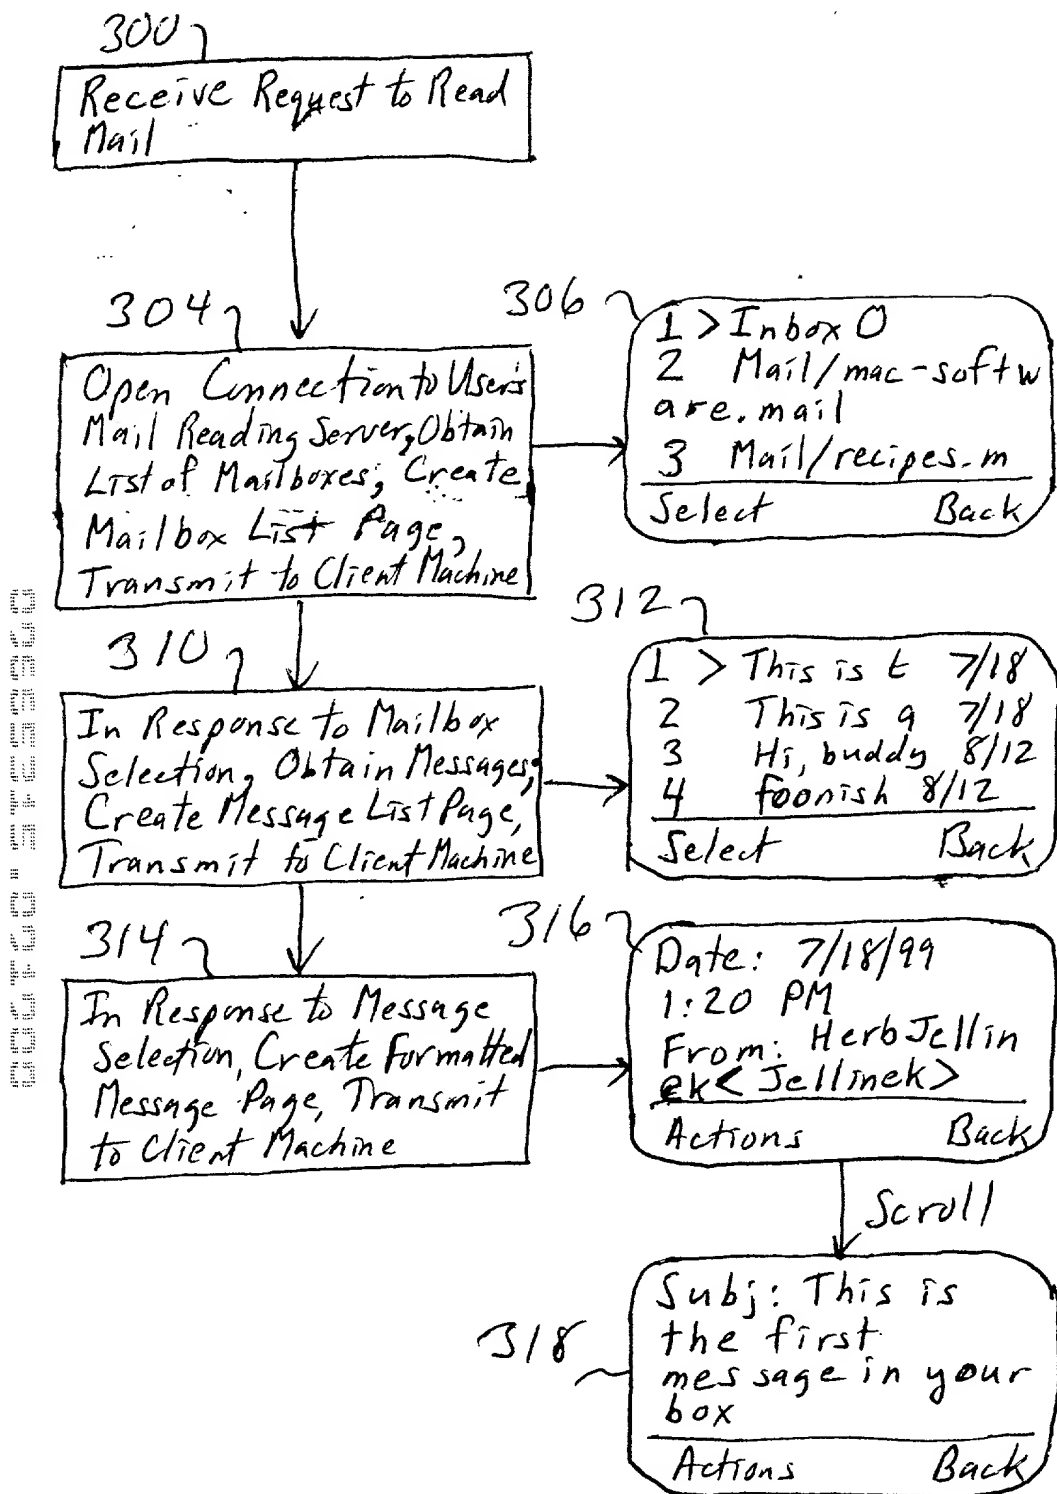 300
Receive Request to Read
Mail
304
Open Connection to User's
Mail Reading Server, Obtain
List of Mailboxes; Create
Mailbox List Page,
Transmit to Client Machine
306
1 > Inbox 0
2 Mail/mac-softw
are.mail
3 Mail/recipes.m
Select Back
310
In Response to Mailbox
Selection, Obtain Messages;
Create Message List Page,
Transmit to Client Machine
312
1 > This is t 7/18
2 This is a 7/18
3 Hi, buddy 8/12
4 foonish 8/12
Select Back
314
In Response to Message
Selection, Create Formatted
Message Page, Transmit
to Client Machine
316
Date: 7/18/99
1:20 PM
From: Herb Jellin
ek< Jellinek>
Actions Back
Scroll
318
Subj: This is
the first
message in your
box
Actions Back